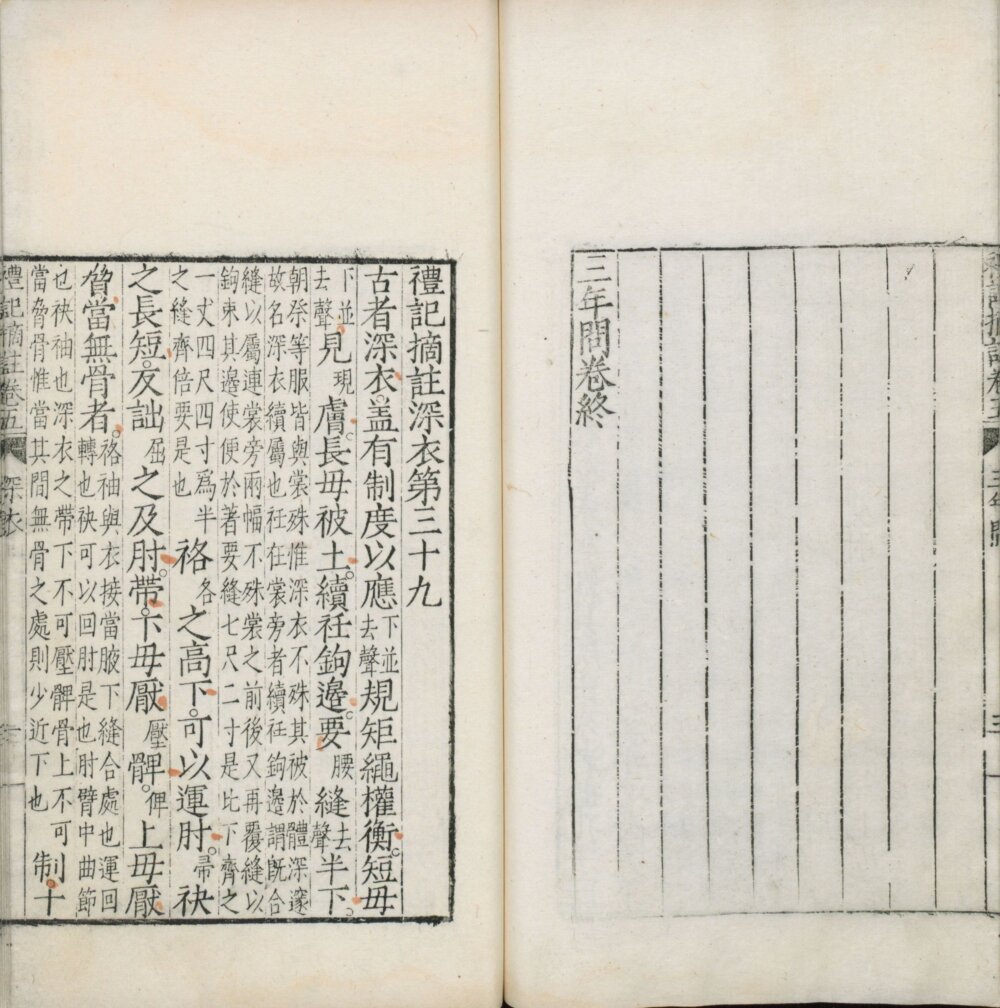 三年問卷終
禮記摘註深衣第三十九
古者深衣。盖有制度以應下並去聲規矩繩權衡。短毋
下並去聲見現膚。長毋被土。續衽鉤邊。要腰縫去聲半下。
朝祭等服皆與裳殊惟深衣不殊其被於體深邃
故名深衣續屬也衽在裳旁者續衽鉤邊謂既合
縫以屬連裳旁兩幅不殊裳之前後又再覆縫以
鉤束其邊使便於著要縫七尺二寸是比下齊之
一丈四尺四寸爲半
之縫齊倍要是也
袼各之高下。可以運肘。帚袂
之長短。反詘屈之及肘。帶。下毋厭壓髀。俾上毋厭
脅當無骨者。
袼袖與衣接當腋下縫合處也運回
轉也袂可以回肘是也肘臂中曲節
也袂袖也深衣之帶下不可壓髀骨上不可
當脅骨惟當其間無骨之處則少近下也
制。十
禮記摘註卷五 深衣